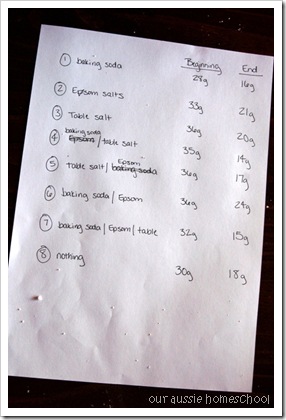 Beginning End
1 baking soda 28g 16g
2 Epsom salts 33g 21g
3 Table salt 36g 20g
4 baking soda Epsom / table salt 35g 14g
5 Table salt / Epsom baking soda 36g 17g
6 baking soda / Epsom 36g 24g
7 baking soda / Epsom / table 32g 15g
8 nothing 30g 18g
our aussie homeschool